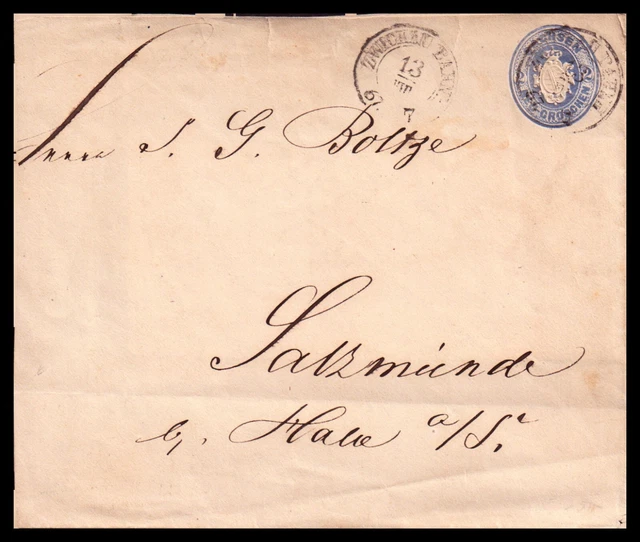 ZWICKAU BAHNH
13
VII
7
SACHSEN
GROSCHEN
Herrn J. G. Boltze
Salzmünde
b/. Halle a/S.